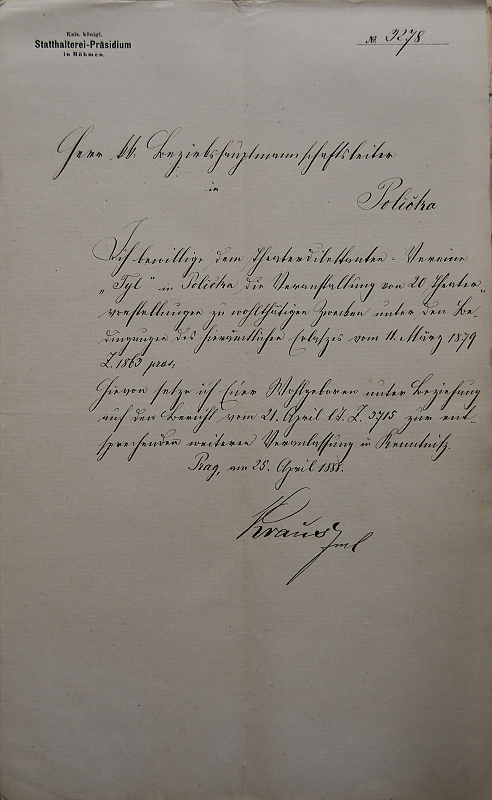 Kais. königl.
Statthalterei-Präsidium
in Böhmen.
№ 3278
Herr kk. Bezirkshauptmannschaftsleiter
in
Polička
Ich bewillige dem Theaterdilettanten-Vereine
„Tyl“ in Polička die Veranstaltung von 20 Theater-
vorstellungen zu wohlthätigen Zwecken unter den Be-
dingungen des hierämtlichen Erlaßes vom 11. März 1879
Z. 1863 praes.
Hievon setze ich Euer Wohlgeboren unter Beziehung
auf den Bericht vom 21. April l. J. Z. 3715 zur ent-
sprechenden weiteren Veranlassung in Kenntniß.
Prag, am 25. April 1888.
Kraus